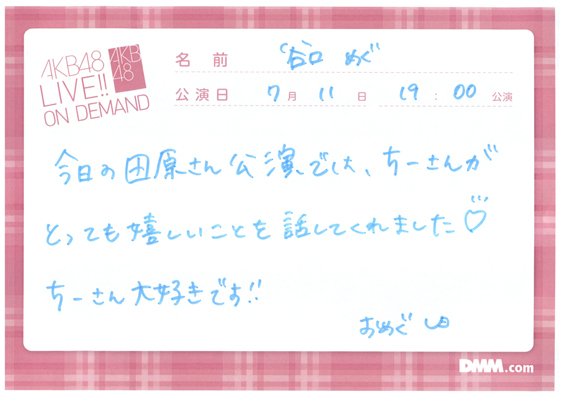 AKB48
LIVE!!
ON DEMAND
AKB
48
名前 谷口 めぐ
公演日 7月 11日 19:00 公演
今日の田原さん公演では、ちーさんが
とっても嬉しいことを話してくれました♡
ちーさん大好きです!!
おめぐ
DMM.com